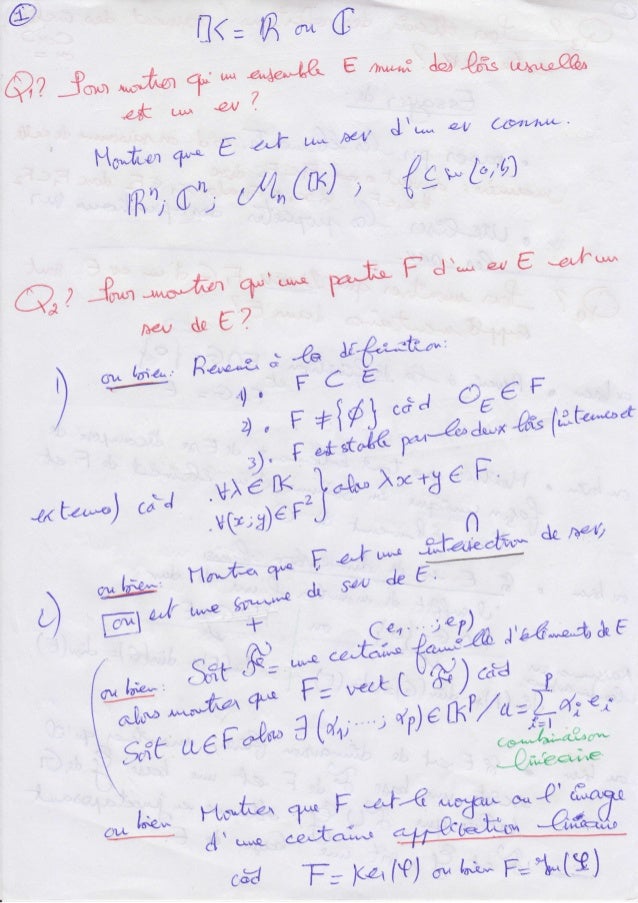 1
𝕂 = ℝ ou ℂ
Q1? Pour montrer qu'un ensemble E muni des lois usuelles
est un ev ?
Montrer que E est un sev d'un ev connu.
ℝⁿ; ℂⁿ; Mn(𝕂), sur [a;b]
Q2? Pour montrer qu'une partie F d'un ev E est un
sev de E?
1) ou bien: Revenir à la définition:
1). F ⊂ E
2). F ≠ {∅} càd 0E ∈ F
3). F est stable par les deux lois (internes et
externe) càd .∀λ ∈ 𝕂
.∀(x;y) ∈ F² } alors λx+y ∈ F.
∩
ou bien: Montrer que F est une intersection de sev,
2) ou est une somme de sev de E.
+
(e1,...;ep)
ou bien: Soit = une certaine famille d'éléments de E
alors montrer que F = vect ( ) càd
Soit u ∈ F alors ∃ (α1;...;αp) ∈ 𝕂ᵖ / u = ∑ᵖi=1 αi ei
combinaison
linéaire
ou bien Montrer que F est le noyau ou l'image
d'une certaine application linéaire
càd F = Ker(φ) ou bien F = Im(φ)